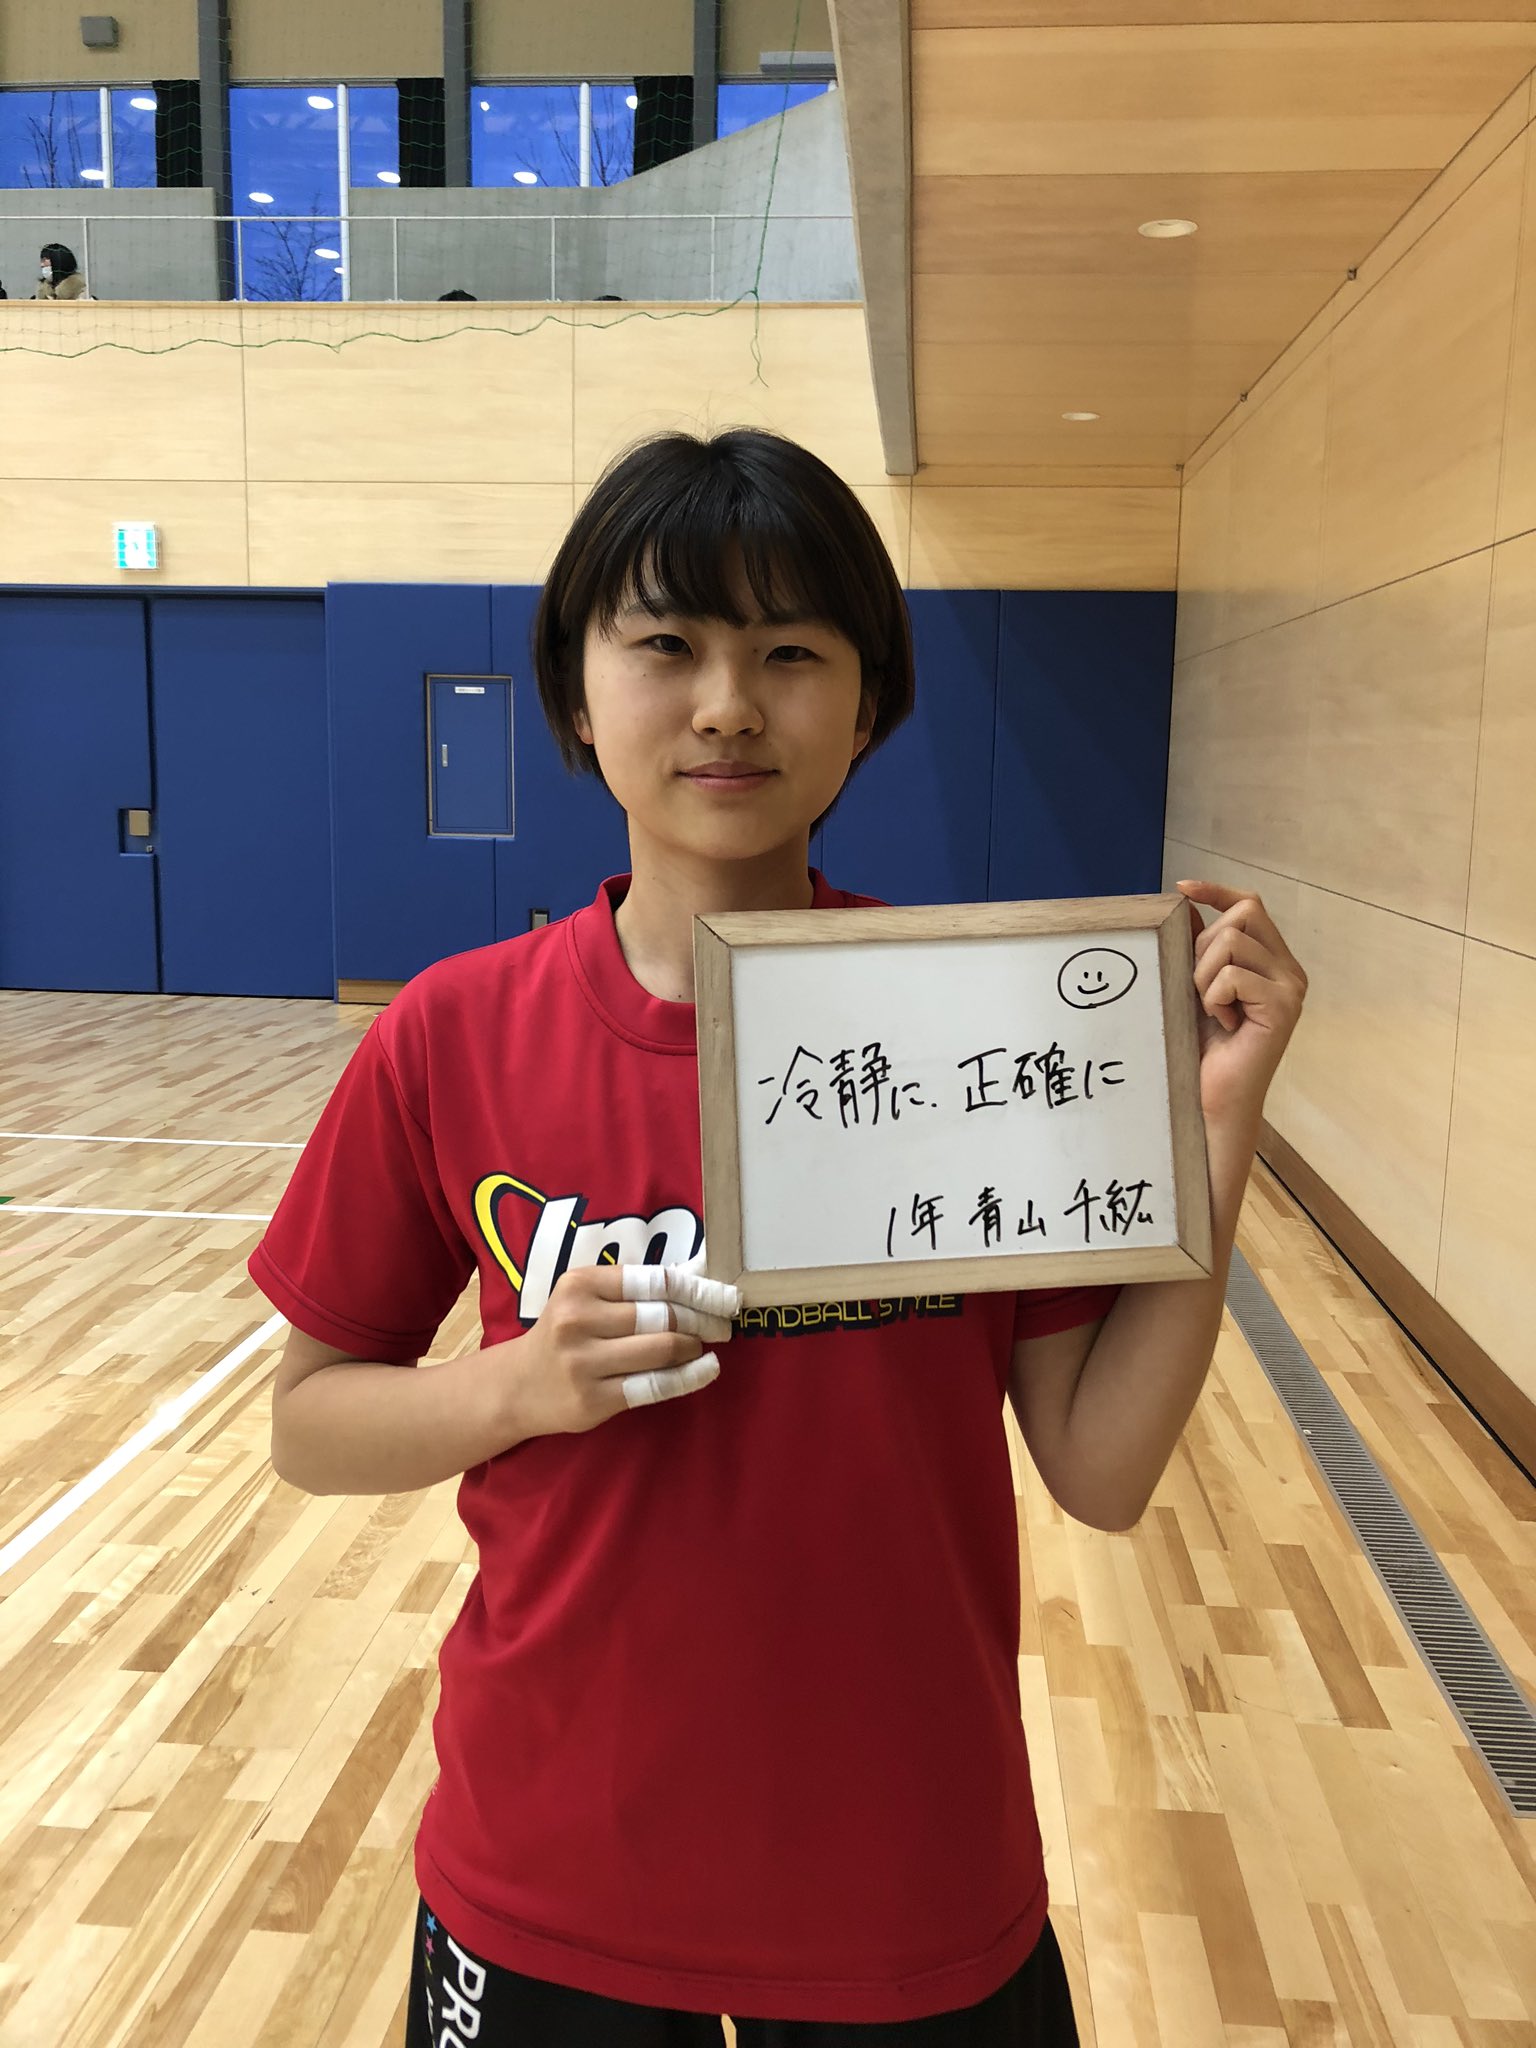 冷静に、正確に
1年 青山 千紘
Im
HANDBALL STYLE
PRO